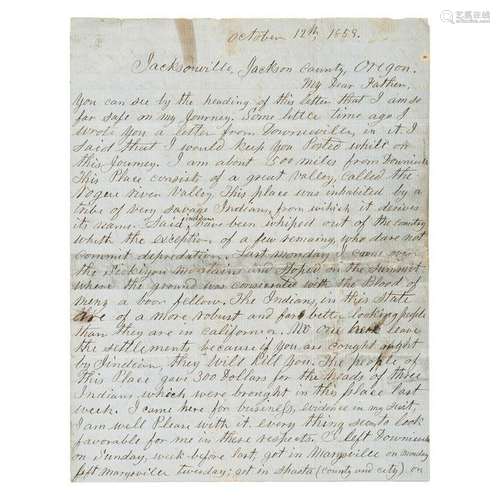 October 12th, 1858.
Jacksonville, Jackson County, Oregon.
My Dear Father,
You can see by the heading of this letter that I am so
far safe on my Journey. Some little time ago I
wrote you a letter from Downieville, in it I
said that I would keep you Posted whilst on
this Journey. I am about 500 miles from
This Place consists of a great valley, called the
Rogue River Valley. This place was inhabited by a
tribe of very savage Indians, from which it derives
its name. Said Indians have been whiped out of the country
whith the exception of a few remaining, who dare not
commit depredation. Last monday I came over
the mountains and Stoped on the Summit
where the ground was consecrated with the Blood of
meny a poor fellow. The Indians, in this State
are of a more robust and far better looking people
than they are in California. No one leave
the settlements because if you are caught
by Jindian, they will Kill you. The people of
this Place gave 300 Dollars for the heads of three
Indians, which were brought in this place last
week. I came here for business,
I am well Please with it, every thing seems to look
favorable for me in these respects. I left
on Sunday, week before last, got in Marysville on monday
left Marysville tuesday; got in Shasta (county and city) on